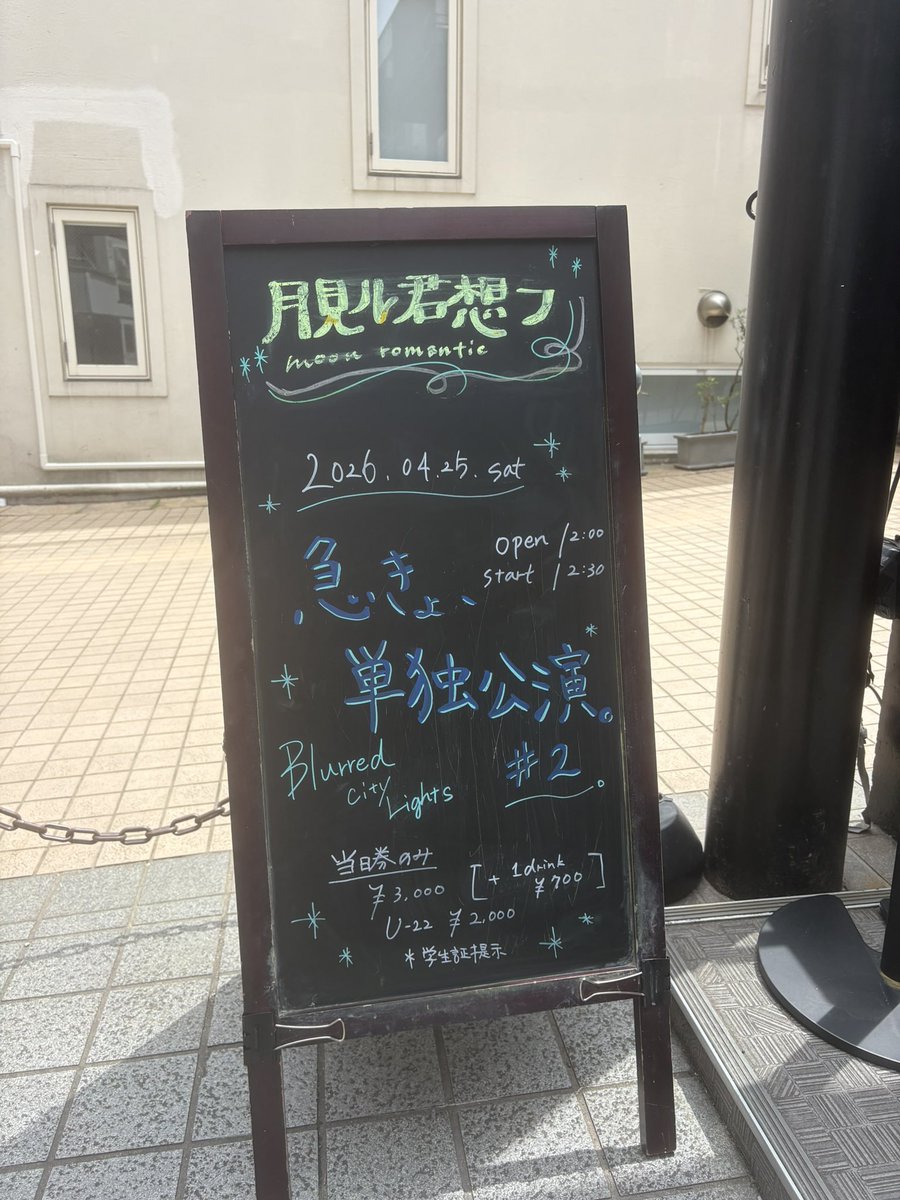 月見ル君想フ
moon romantic
2026.04.25.sat
open 12:00
start 12:30
急きょ、
単独公演。
#2
Blurred
city
Lights
当日券のみ
¥3,000
[+ 1drink ¥700]
U-22 ¥2,000
*学生証提示